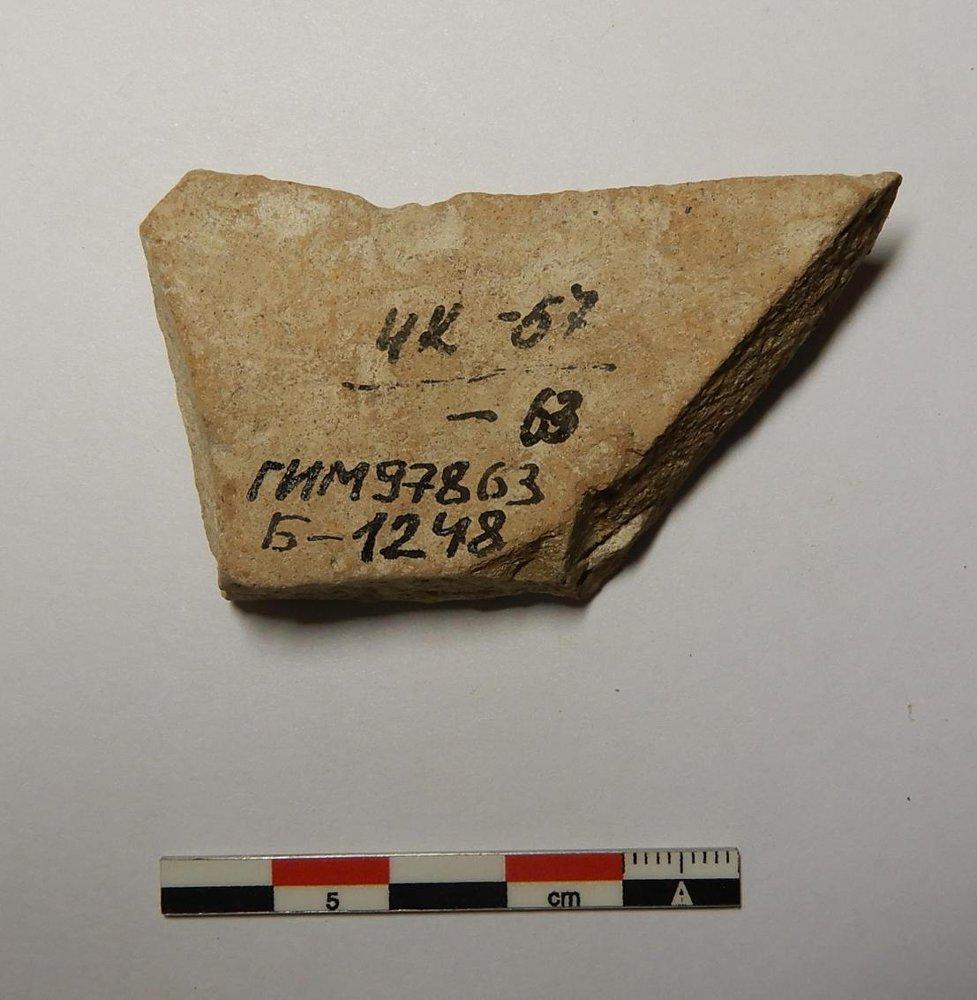 ЧК -57
— 63
ГИМ97863
Б-1248
5 cm